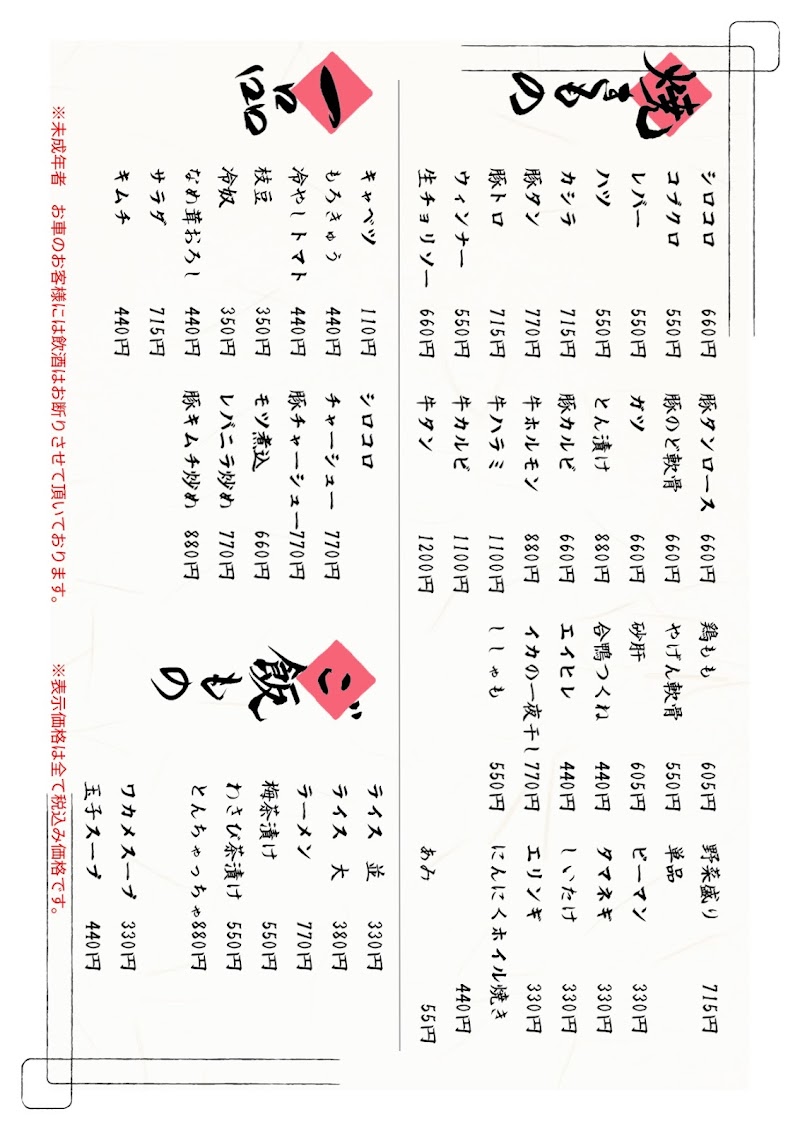 焼きもの
シロコロ 660円
コブクロ 550円
レバー 550円
ハツ 550円
カシラ 715円
豚タン 770円
豚トロ 715円
ウィンナー 550円
生チョリソー 660円
豚タンロース 660円
豚のど軟骨 660円
ガツ 660円
とん漬け 880円
豚カルビ 660円
牛ホルモン 880円
牛ハラミ 1100円
牛カルビ 1100円
牛タン 1200円
鶏もも 605円
やげん軟骨 550円
砂肝 605円
合鴨つくね 440円
エイヒレ 440円
イカの一夜干し 770円
ししゃも 550円
野菜盛り 715円
単品
ピーマン 330円
タマネギ 330円
しいたけ 330円
エリンギ 330円
にんにくホイル焼き
440円
あみ 55円
一品
キャベツ 110円
もろきゅう 440円
冷やしトマト 440円
枝豆 350円
冷奴 350円
なめ茸おろし 440円
サラダ 715円
キムチ 440円
シロコロ
チャーシュー 770円
豚チャーシュー 770円
モツ煮込 660円
レバニラ炒め 770円
豚キムチ炒め 880円
ご飯もの
ライス 並 330円
ライス 大 380円
ラーメン 770円
梅茶漬け 550円
わさび茶漬け 550円
とんちゃっちゃ 880円
ワカメスープ 330円
玉子スープ 440円
※未成年者 お車のお客様には飲酒はお断りさせて頂いております。 ※表示価格は全て税込み価格です。